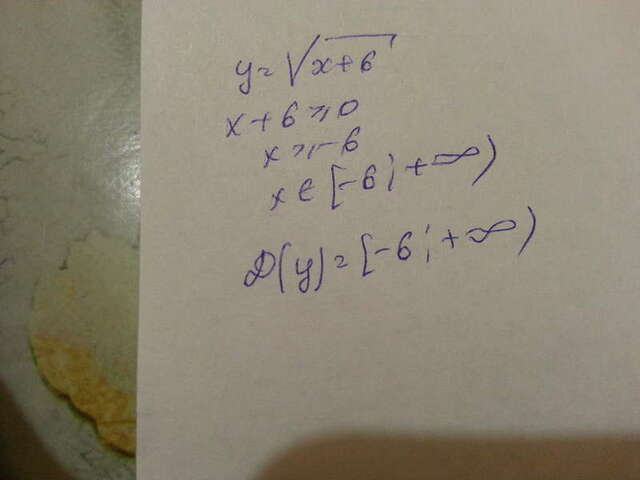 y = √x+6
x + 6 ⩾ 0
x ⩾ -6
x ∈ [-6; +∞)
D(y) = [-6; +∞)